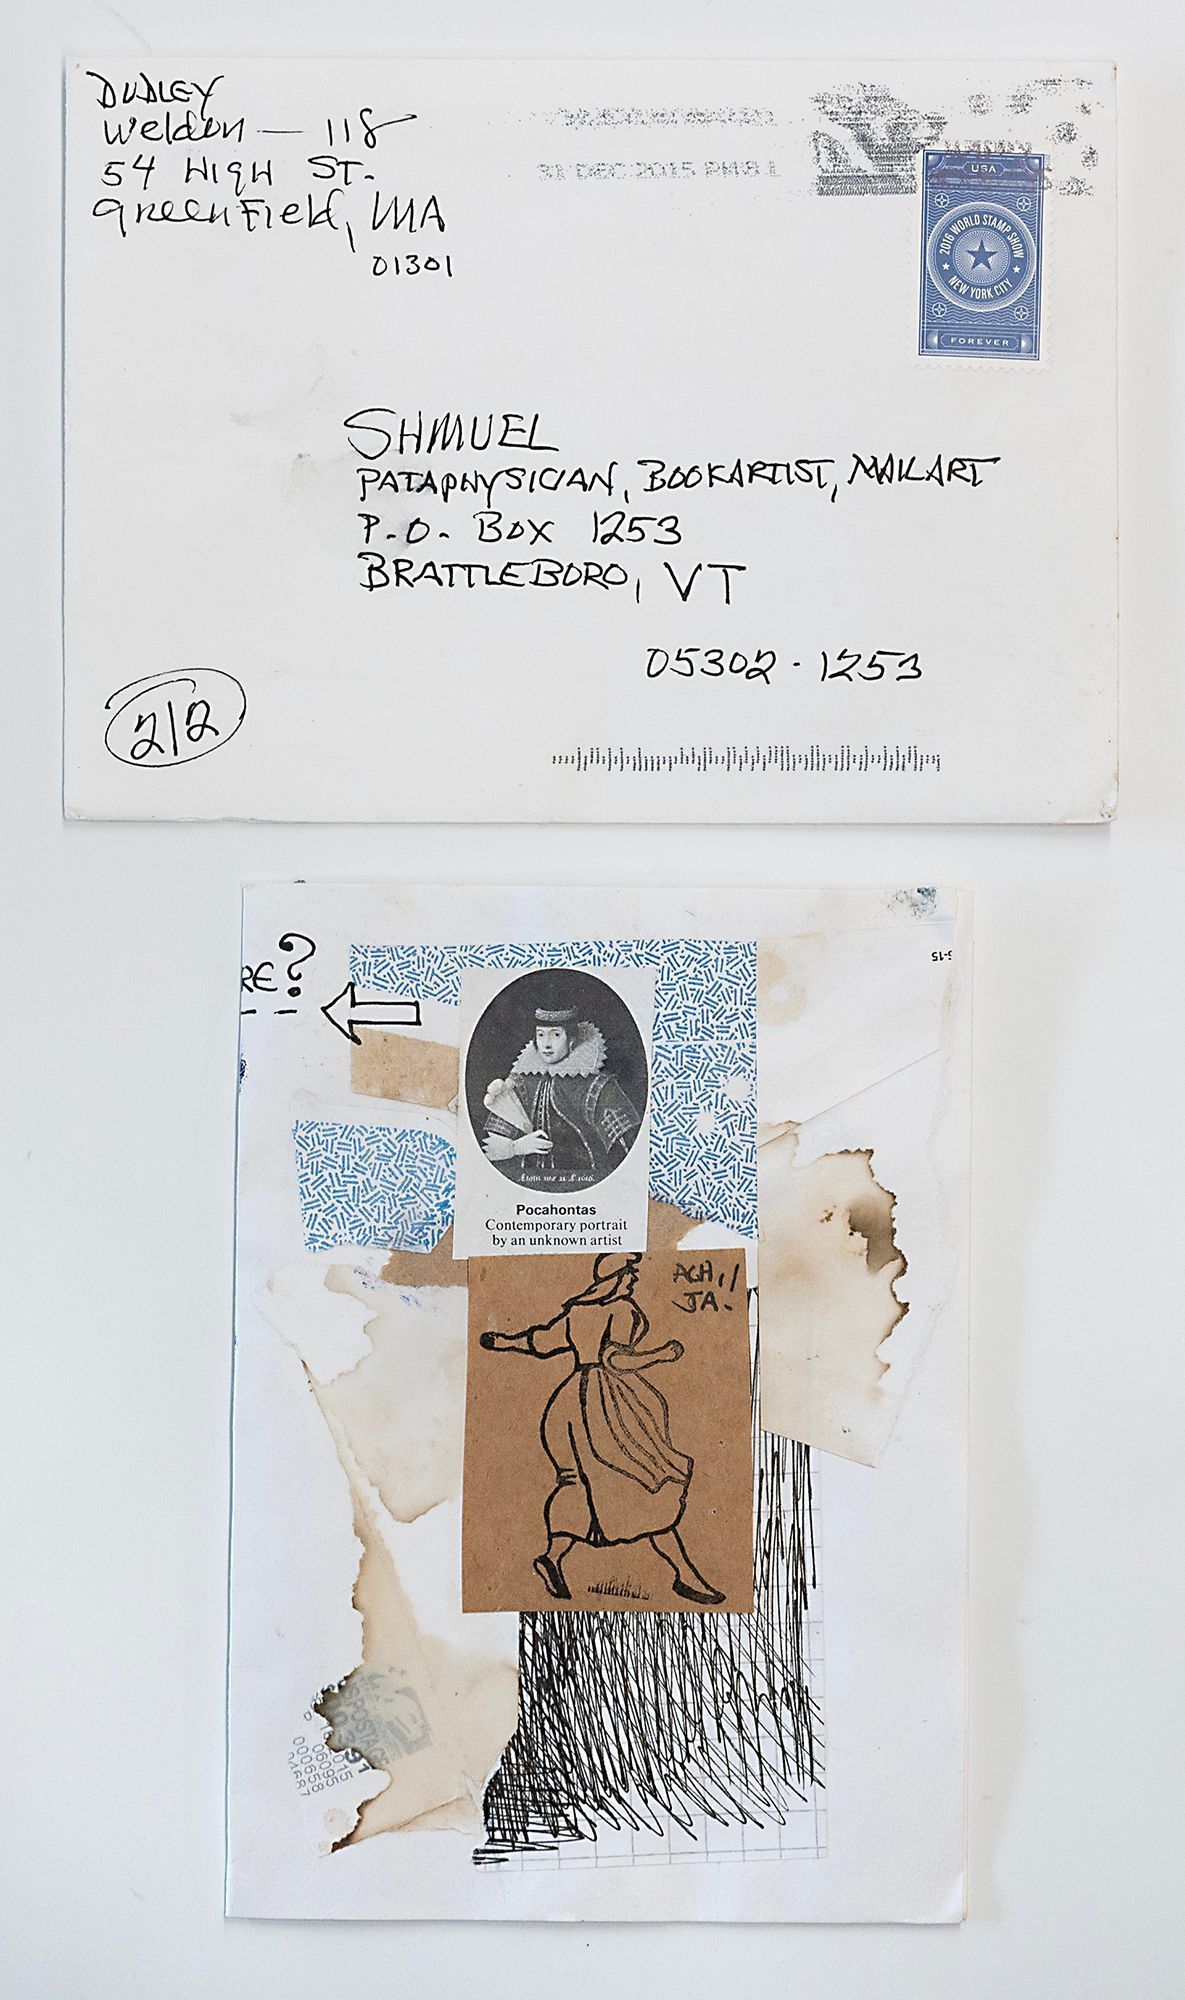 DUDLEY
Weldon — 118
54 HIGH ST.
Greenfield, MA
01301
31 DEC 2015 PM 8 1
USA
2016 WORLD STAMP SHOW
NEW YORK CITY
FOREVER
SHMUEL
PATAPHYSICIAN, BOOKARTIST, MAILART
P.O. BOX 1253
BRATTLEBORO, VT
05302-1253
2/2
RE?
Pocahontas
Contemporary portrait
by an unknown artist
ACH,!
JA.
POSTAGE